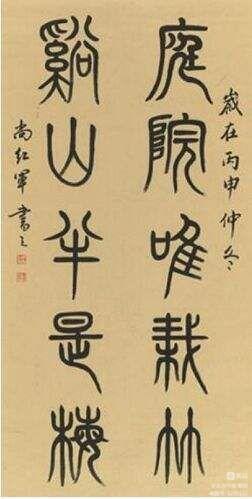 歲在丙申仲冬
庭院唯栽竹
谿山半是梅
尚紅軍書之